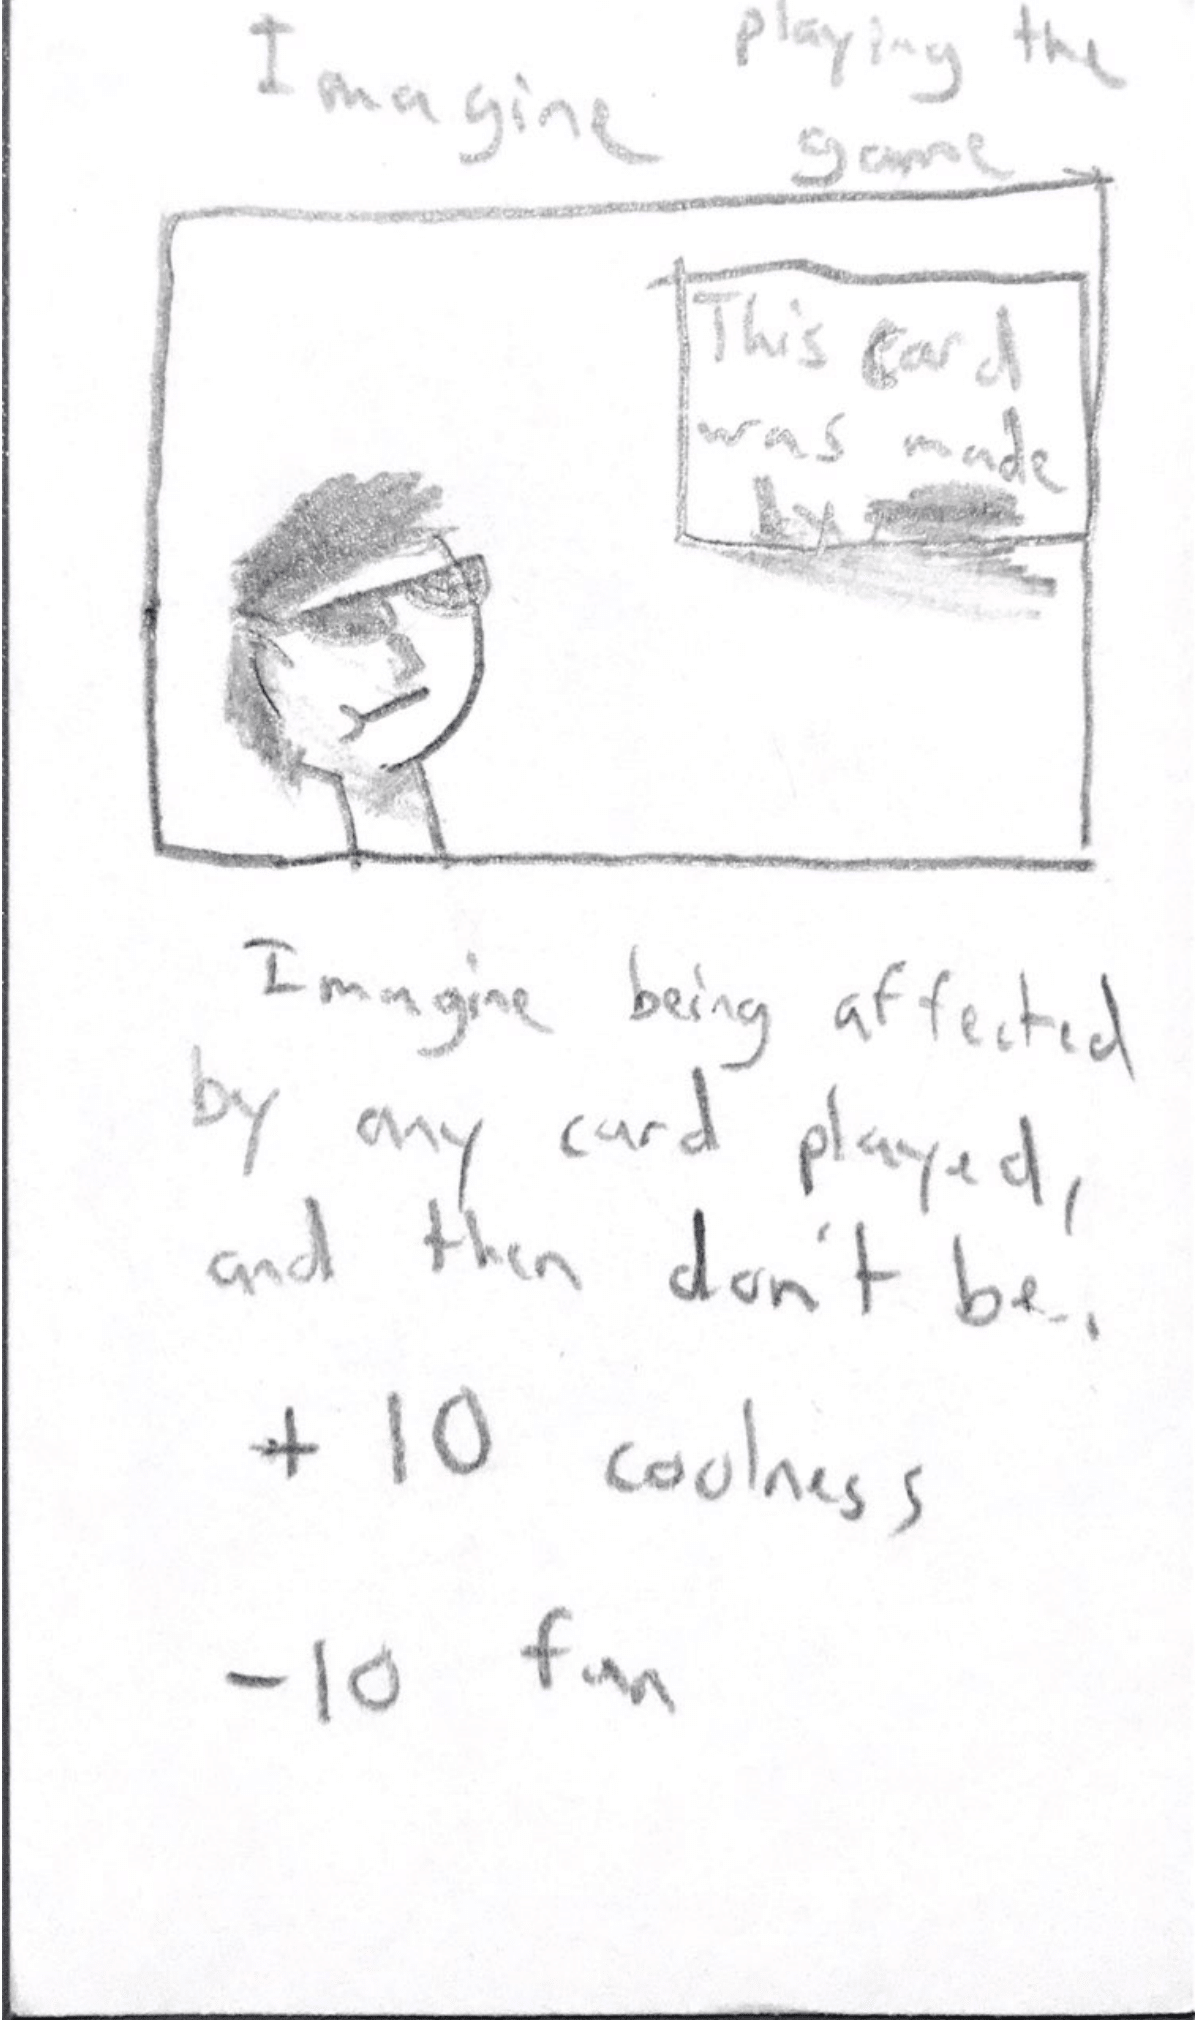 Imagine playing the
game
This card
was made
by
Imagine being affected
by any card played,
and then don't be.
+10 coolness
-10 fun